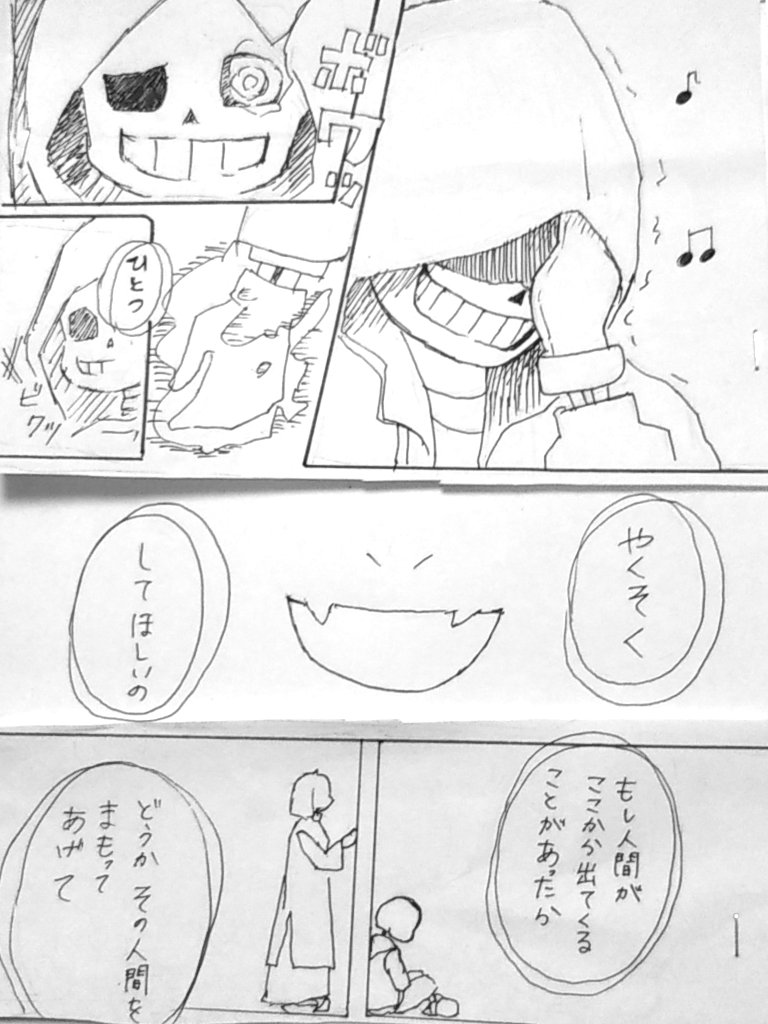 ボワッ
ひとつ
ビクッ
やくそく
してほしいの
もし人間が
ここから出てくる
ことがあったら
どうか その人間を
まもって
あげて